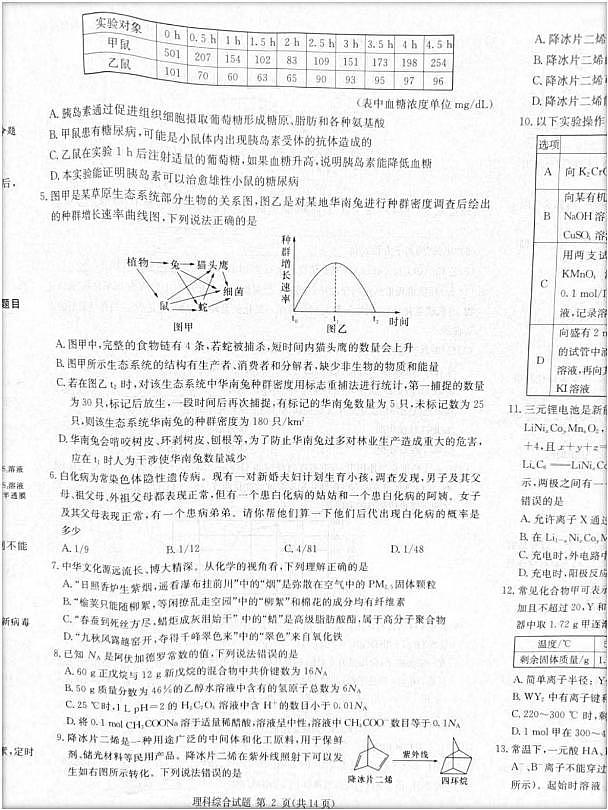 实验对象 0 h 0.5 h 1 h 1.5 h 2 h 2.5 h 3 h 3.5 h 4 h 4.5 h
甲鼠 501 207 154 102 83 109 151 173 198 254
乙鼠 101 70 60 63 65 90 93 95 97 96
(表中血糖浓度单位 mg/dL)
A. 胰岛素通过促进组织细胞摄取葡萄糖形成糖原、脂肪和各种氨基酸
B. 甲鼠患有糖尿病,可能是小鼠体内出现胰岛素受体的抗体造成的
C. 乙鼠在实验 1 h 后注射适量的葡萄糖,如果血糖升高,说明胰岛素能降低血糖
D. 本实验能证明胰岛素可以治愈雄性小鼠的糖尿病
5. 图甲是某草原生态系统部分生物的关系图,图乙是对某地华南兔进行种群密度调查后绘出
的种群增长速率曲线图,下列说法正确的是
植物 兔 猫头鹰
细菌
鼠 蛇
图甲
种群增长速率
t₀ t₁ t₂ 时间
图乙
A. 图甲中,完整的食物链有 4 条,若蛇被捕杀,短时间内猫头鹰的数量会上升
B. 图甲所示生态系统的结构有生产者、消费者和分解者,缺少非生物的物质和能量
C. 若在图乙 t₂ 时,对该生态系统中华南兔种群密度用标志重捕法进行统计,第一捕捉的数量
为 30 只,标记后放生,一段时间后再次捕捉,有标记的华南兔数量为 5 只,未标记数为 25
只,则该生态系统华南兔的种群密度为 180 只/km²
D. 华南兔会啃咬树皮、环剥树皮、刨根等,为了防止华南兔过多对林业生产造成重大的危害,
应在 t₁ 时人为干涉使华南兔数量减少
6. 白化病为常染色体隐性遗传病。现有一对新婚夫妇计划生育小孩,调查发现,男子及其父
母、祖父母、外祖父母都表现正常,但有一个患白化病的姑姑和一个患白化病的阿姨。女子
及其父母表现正常,有一个患病弟弟。请你帮他们算一下他们后代出现白化病的概率是
多少
A. 1/9 B. 1/12 C. 4/81 D. 1/48
7. 中华文化源远流长、博大精深。从化学的视角看,下列理解正确的是
A. “日照香炉生紫烟,遥看瀑布挂前川”中的“烟”是弥散在空气中的 PM₂.₅ 固体颗粒
B. “榆荚只能随柳絮,等闲撩乱走空园”中的“柳絮”和棉花的成分均有纤维素
C. “春蚕到死丝方尽,蜡炬成灰泪始干”中的“蜡”是高级脂肪酸酯,属于高分子聚合物
D. “九秋风露越窑开,夺得千峰翠色来”中的“翠色”来自氧化铁
8. 已知 Nₐ 是阿伏加德罗常数的值,下列说法错误的是
A. 60 g 正戊烷与 12 g 新戊烷的混合物中共价键数为 16Nₐ
B. 50 g 质量分数为 46%的乙醇水溶液中含有的氢原子总数为 6Nₐ
C. 25 ℃时,1 L pH=2 的 H₂C₂O₄ 溶液中含 H⁺的数目小于 0.01Nₐ
D. 将 0.1 mol CH₃COONa 溶于适量稀醋酸,溶液呈中性,溶液中 CH₃COO⁻数目等于 0.1Nₐ
9. 降冰片二烯是一种用途广泛的中间体和化工原料,用于保鲜
剂、储光材料等民用产品。降冰片二烯在紫外线照射下可以发
生如右图所示转化。下列说法错误的是
紫外线
降冰片二烯 四环烷
理科综合试题 第 2 页(共 14 页)
题目
不能
新病毒
,定时
A. 降冰片二烯
B. 降冰片二烯
C. 降冰片二烯
D. 降冰片二烯
10. 以下实验操作
选项
A 向 K₂Cr
B 向某有机
NaOH 溶
CuSO₄ 溶
C 用两支试
KMnO₄
0.1 mol/
液,记录溶
D 向盛有 2 m
的试管中滴
溶液,再向
KI 溶液
11. 三元锂电池是新
LiNiₓCoᵧMn_zO₂
+4,且 x+y+z=
示,两极之间有一
错误的是
A. 允许离子 X 通过
C. 充电时,外电路中
D. 充电时,阳极反应
12. 常见化合物甲可表示
加且不超过 20,Y 和
器中取 1.72 g 甲逐渐
温度/℃
剩余固体质量/g 1.
A. 简单离子半径:Y
B. WY₂ 中有离子键和
C. 220～300 ℃ 时,剩
D. 1 mol 甲在 300～4
13. 常温下,一元酸 HA、
A⁻、B⁻离子不能穿过
所示)。起始时溶液